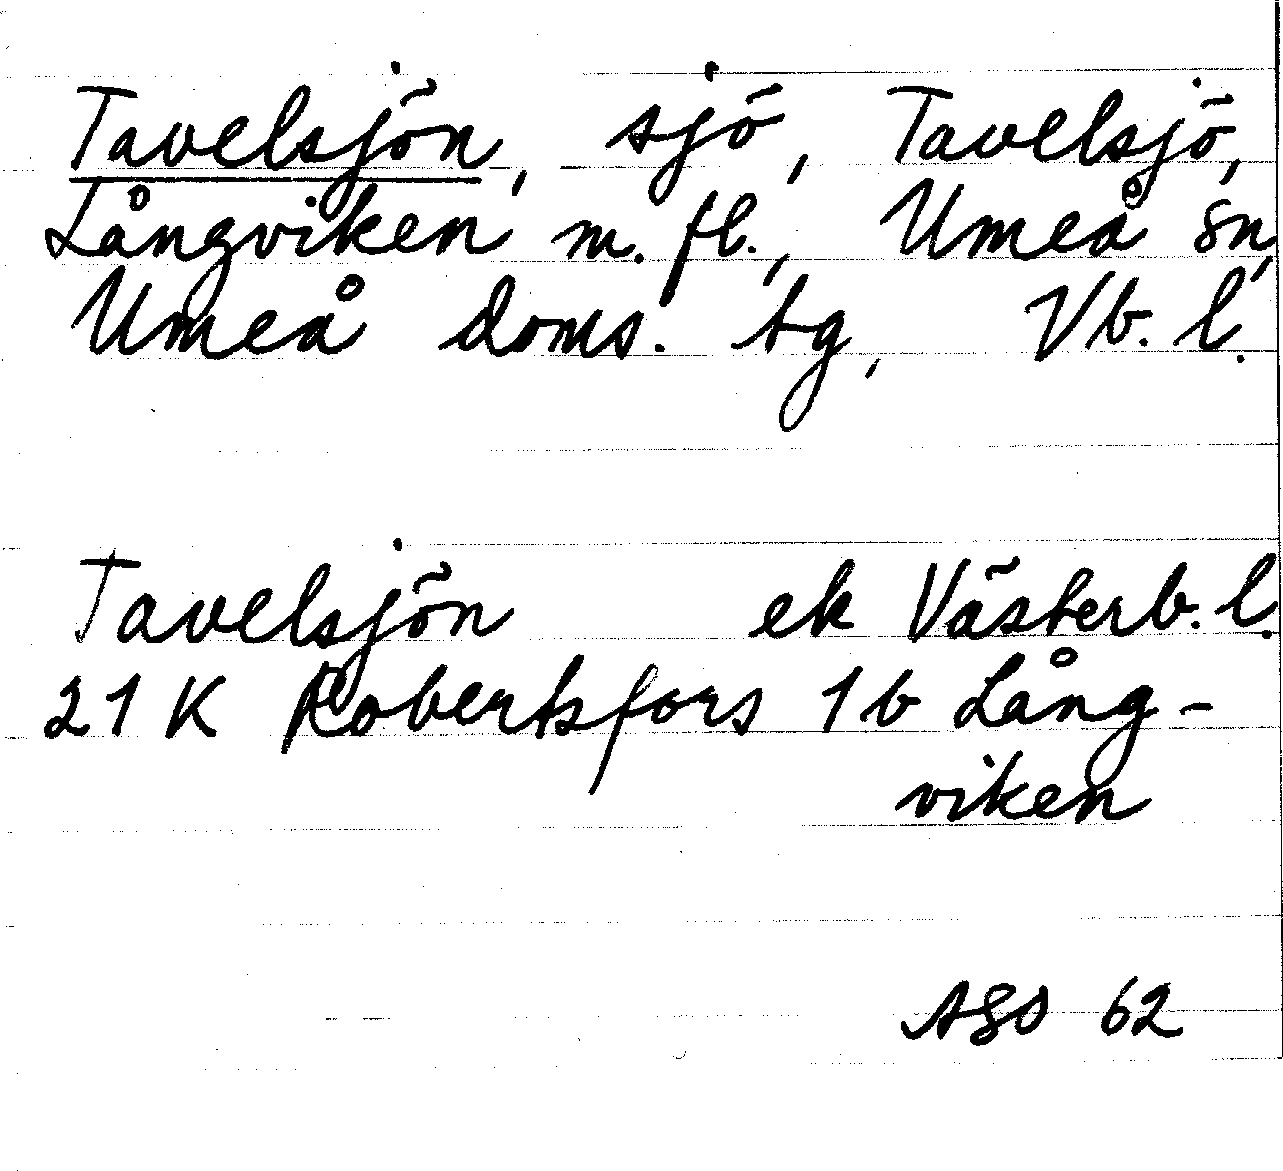 Tavelsjön, sjö, Tavelsjö,
Långviken m.fl., Umeå sn,
Umeå doms. tg, Vb. l.
Tavelsjön ek Västerb. l.
21 K Robertsfors 1 b Lång-
viken
AGS 62